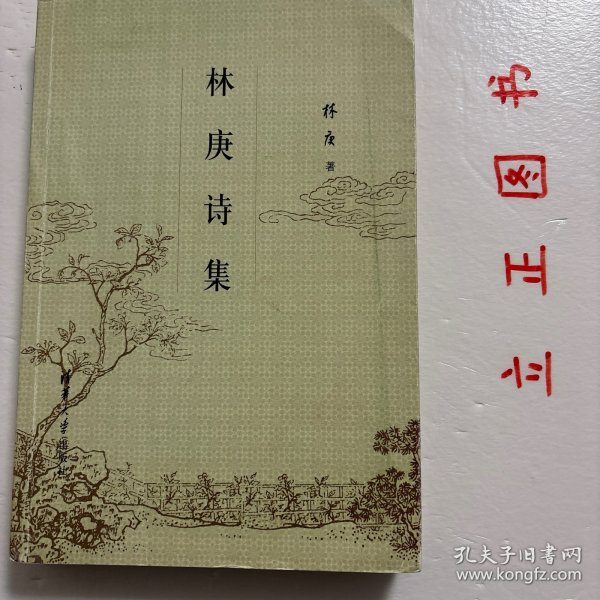 林庚诗集
林庚 著
清华大学出版社
立正图书
孔夫子旧书网
www.kongfz.com